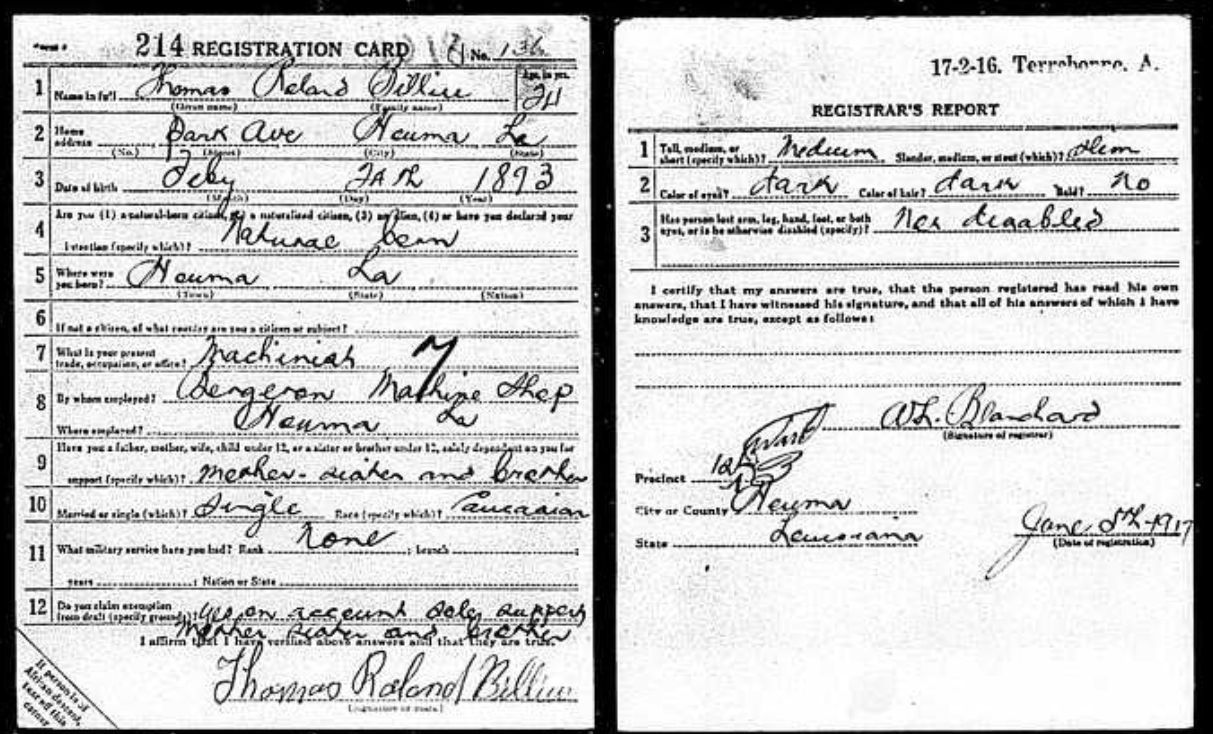 214 REGISTRATION CARD No. 136
1 Name in full Thomas Roland Billiu Age, in yrs. 24
(Given name) (Family name)
2 Home address Park Ave Houma La
(No.) (Street) (City) (State)
3 Date of birth Feby 24th 1893
(Month) (Day) (Year)
4 Are you (1) a natural-born citizen, (2) a naturalized citizen, (3) an alien, (4) or have you declared your
intention (specify which)? Natural born
5 Where were you born? Houma La
(Town) (State) (Nation)
6 If not a citizen, of what country are you a citizen or subject?
7 What is your present trade, occupation, or office? Machinist 7
8 By whom employed? Bergeron Machine Shop
Where employed? Houma La
9 Have you a father, mother, wife, child under 12, or a sister or brother under 12, solely dependent on you for
support (specify which)? Mother - sister and brother
10 Married or single (which)? Single Race (specify which)? Caucasian
11 What military service have you had? Rank None ; branch ;
years ; Nation or State
12 Do you claim exemption from draft (specify grounds)? Yes, on account sole support
Mother sister and brother
I affirm that I have verified above answers and that they are true.
Thomas Roland Billiu
If person is of
African descent,
tear off this
corner
17-2-16. Terrebonne, A.
REGISTRAR'S REPORT
1 Tall, medium, or short (specify which)? Medium Slender, medium, or stout (which)? Slem
2 Color of eyes? dark Color of hair? dark Bald? No
3 Has person lost arm, leg, hand, foot, or both eyes, or is he otherwise disabled (specify)? Not disabled
I certify that my answers are true, that the person registered has read his own
answers, that I have witnessed his signature, and that all of his answers of which I have
knowledge are true, except as follows:
W.L. Blanchard
(Signature of registrar)
Precinct 1st Ward
City or County Houma
State Louisiana June 5th-1917
(Date of registration)